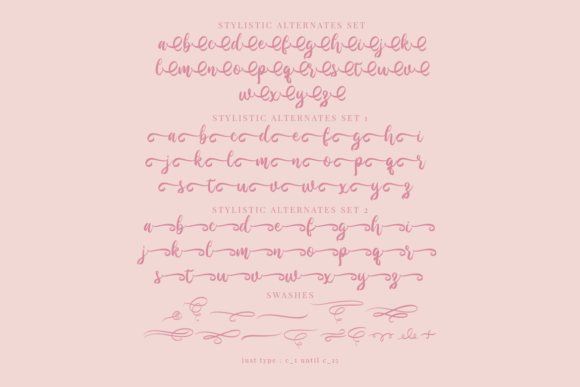 STYLISTIC ALTERNATES SET
a b c d e f g h i j k
l m n o p q r s t u v
w x y z
STYLISTIC ALTERNATES SET 1
a b c d e f g h i
j k l m n o p q r
s t u v w x y z
STYLISTIC ALTERNATES SET 2
a b c d e f g h i
j k l m n o p q r
s t u v w x y z
SWASHES
just type : c_1 until c_15